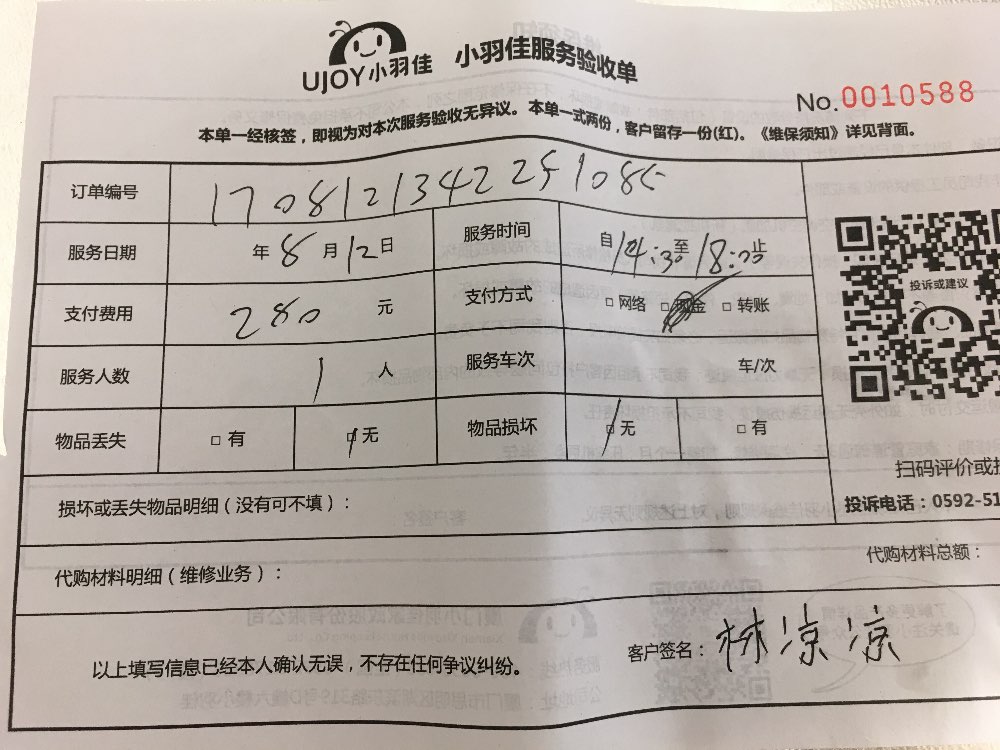 UJOY小羽佳 小羽佳服务验收单
No.0010588
本单一经核签，即视为对本次服务验收无异议。本单一式两份，客户留存一份(红)。《维保须知》详见背面。
订单编号
服务日期 年 8 月 12 日 服务时间 自 14:30 至 18:00 止
支付费用 280 元 支付方式 □ 网络 □ 现金 □ 转账
服务人数 1 人 服务车次 车/次
物品丢失 □ 有 □ 无 物品损坏 □ 无 □ 有
投诉或建议
扫码评价或
投诉电话：0592-51
损坏或丢失物品明细（没有可不填）：
代购材料明细（维修业务）：
代购材料总额：
以上填写信息已经本人确认无误，不存在任何争议纠纷。
客户签名：林凉凉